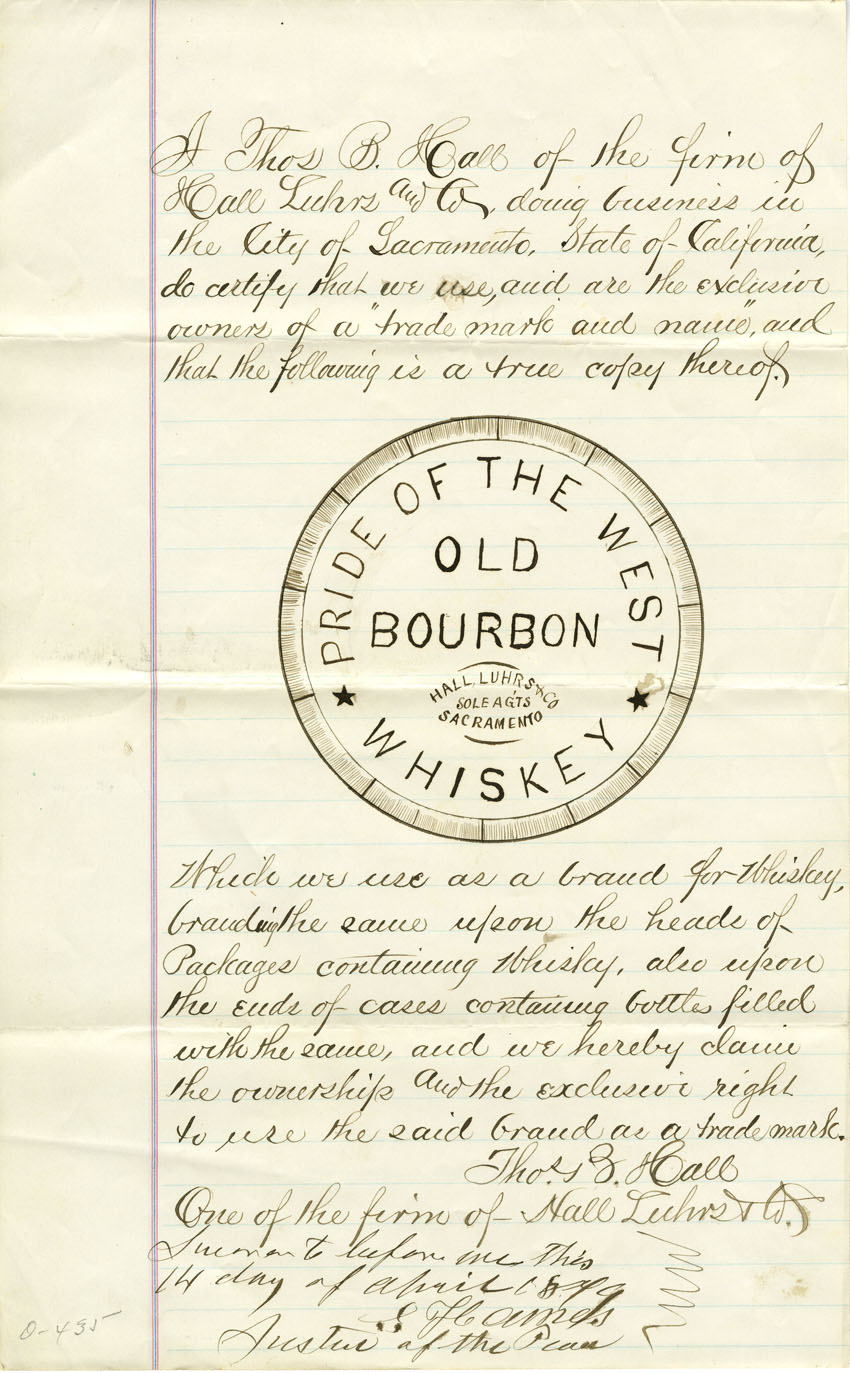 I Thos B. Hall of the firm of
Hall Luhrs and Co, doing business in
the City of Sacramento, State of California,
do certify that we use, and are the exclusive
owners of a "trade mark and name", and
that the following is a true copy thereof.
PRIDE OF THE WEST
OLD
BOURBON
HALL, LUHRS & CO
SOLE AGTS
SACRAMENTO
★ WHISKEY ★
Which we use as a brand for Whiskey,
branding the same upon the heads of
Packages containing Whisky, also upon
the ends of cases containing bottles filled
with the same, and we hereby claim
the ownership and the exclusive right
to use the said brand as a trade mark.
Thos. B. Hall
One of the firm of Hall Luhrs & Co.
Sworn to before me this
14 day of April 1879
Justice of the Peace
O-435